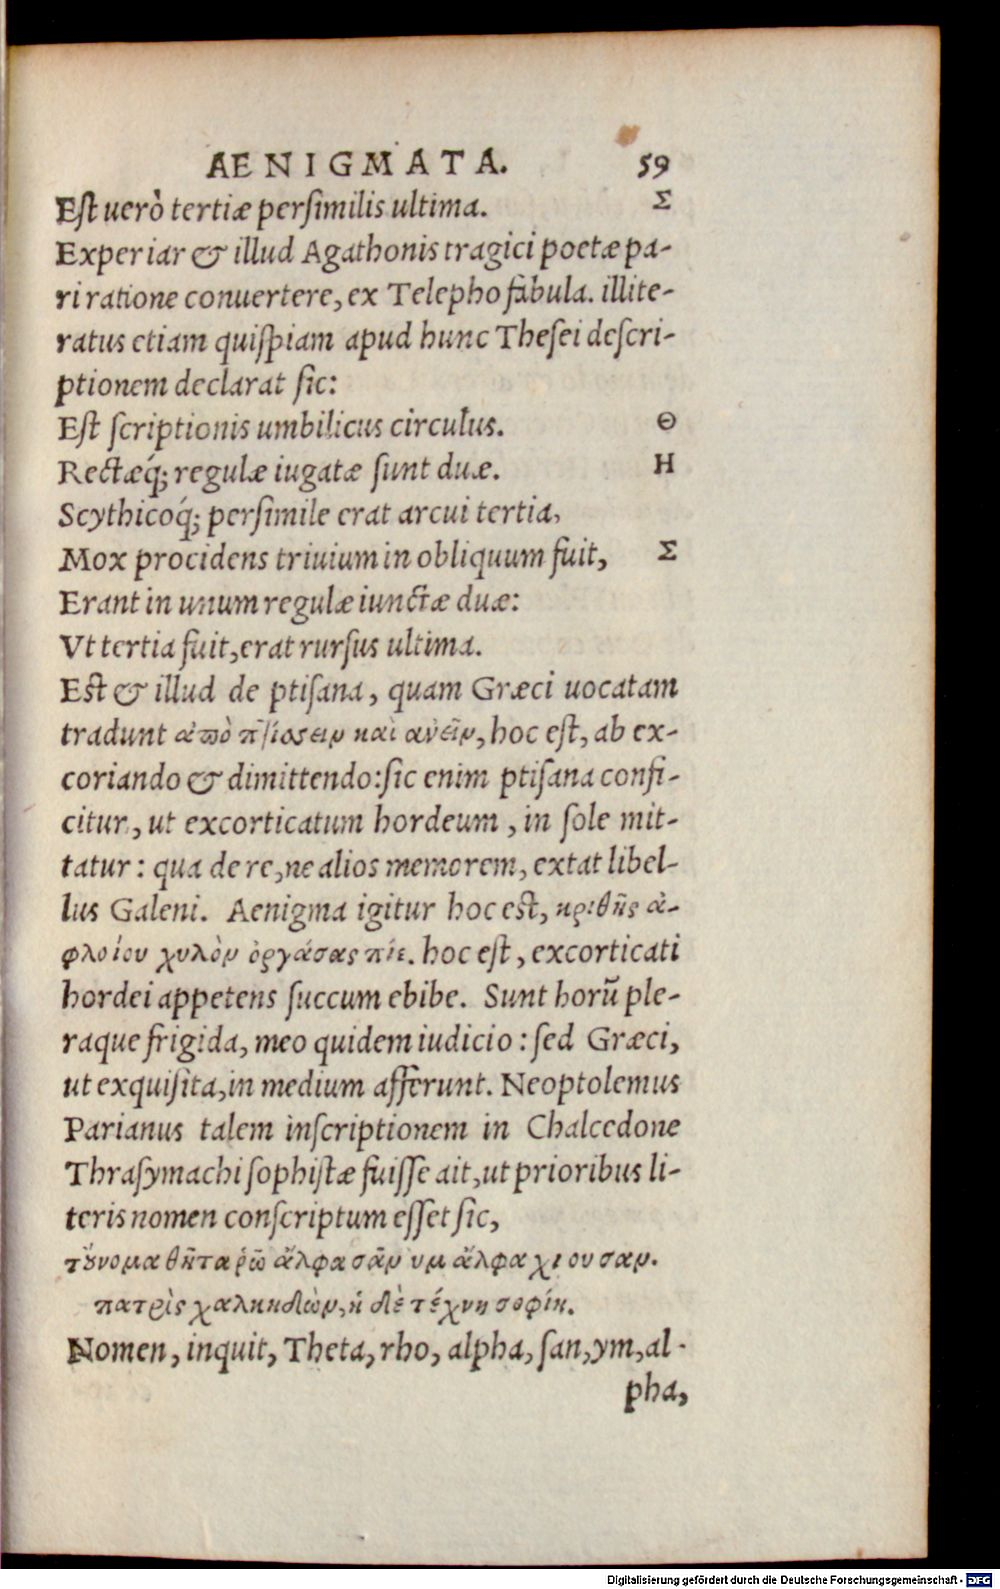 AENIGMATA. 59
Est uerò tertiæ persimilis ultima. Σ
Experiar & illud Agathonis tragici poetæ pa-
ri ratione conuertere, ex Telepho fabula. illite-
ratus etiam quispiam apud hunc Thesei descri-
ptionem declarat sic:
Est scriptionis umbilicus circulus. Θ
Rectæq́; regulæ iugatæ sunt duæ. H
Scythicoq́; persimile erat arcui tertia,
Mox procidens triuium in obliquum fuit, Σ
Erant in unum regulæ iunctæ duæ:
Vt tertia fuit, erat rursus ultima.
Est & illud de ptisana, quam Græci uocatam
tradunt ἀπὸ πτίσσειν καὶ ἀνεῖν, hoc est, ab ex-
coriando & dimittendo: sic enim ptisana confi-
citur, ut excorticatum hordeum, in sole mit-
tatur: qua de re, ne alios memorem, extat libel-
lus Galeni. Aenigma igitur hoc est, κριθῆς ἀ-
φλοίου χυλὸν ὀργάσας πίε. hoc est, excorticati
hordei appetens succum ebibe. Sunt horū ple-
raque frigida, meo quidem iudicio: sed Græci,
ut exquisita, in medium afferunt. Neoptolemus
Parianus talem inscriptionem in Chalcedone
Thrasymachi sophistæ fuisse ait, ut prioribus li-
teris nomen conscriptum esset sic,
τοὔνομα θῆτα ῥῶ ἄλφα σᾶν υμ ἄλφα χι ου σαν.
πατρὶς χαλκηδὼν, ἡ δὲ τέχνη σοφίη.
Nomen, inquit, Theta, rho, alpha, san, ym, al-
pha,
Digitalisierung gefördert durch die Deutsche Forschungsgemeinschaft - DFG